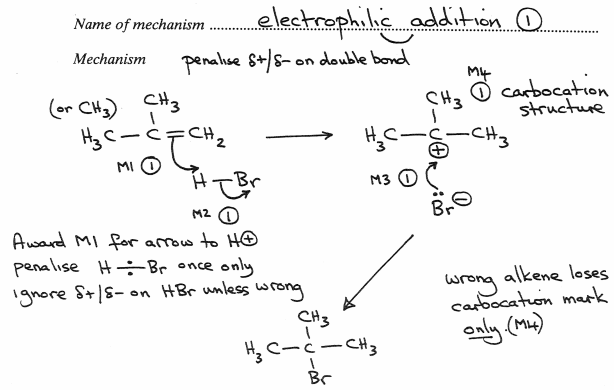 Name of mechanism electrophilic addition ①
Mechanism penalise δ+/δ- on double bond
M4
(or CH₃) CH₃ CH₃ ① carbocation
structure
H₃C — C = CH₂ H₃C — C — CH₃
⊕
M1 ① H — Br M3 ① :Br⊖
M2 ①
Award M1 for arrow to H⊕
penalise H ÷ Br once only
ignore δ+/δ- on HBr unless wrong
wrong alkene loses
carbocation mark
only. (M4)
CH₃
H₃C — C — CH₃
Br